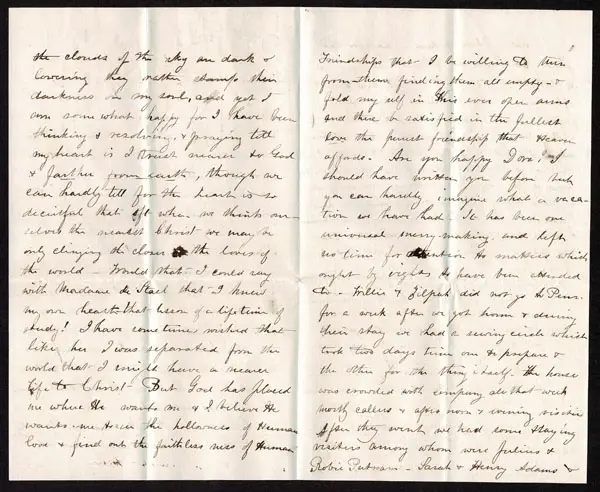 the clouds of the sky are dark &
lowering they rather stamp their
darkness on my soul, and yet I
am somewhat happy for I have been
thinking & resolving & praying till
my heart is I trust nearer to God
& farther from earth, though we
can hardly tell for the heart is so
deceitful that oft when we think our
selves the nearest Christ we may be
only clinging the closer to the loves of
the world – Would that I could say
with Madame de Stael that I knew
my own heart that lesson of a life time of
study! I have sometimes wished that
like her I was separated from the
world that I might have a nearer
life to Christ – But God has placed
me where He wants me & I believe He
wants me to see the hollowness of Human
love & find out the faithlessness of Human
Friendships that I be willing to turn
from them finding them all empty – &
fold myself in His ever open arms
and there be satisfied in the fullest
love the purest friendship that Heaven
affords. Are you happy Dora? I
should have written you before but
you can hardly imagine what a vaca-
tion we have had – It has been one
universal merry-making and left
no time for attention to matters which
ought by rights to have been attended
to – Willie & did not go to Penn.
for a week after we got home & during
their stay we had a sewing circle which
took two days time one to prepare &
the other for the thing itself. The house
was crowded with company all that week
mostly callers & afternoon & evening visitors
After they went we had some staying
visitors among whom were Julius &
Robie Putnam – Sarah & Henry Adams &